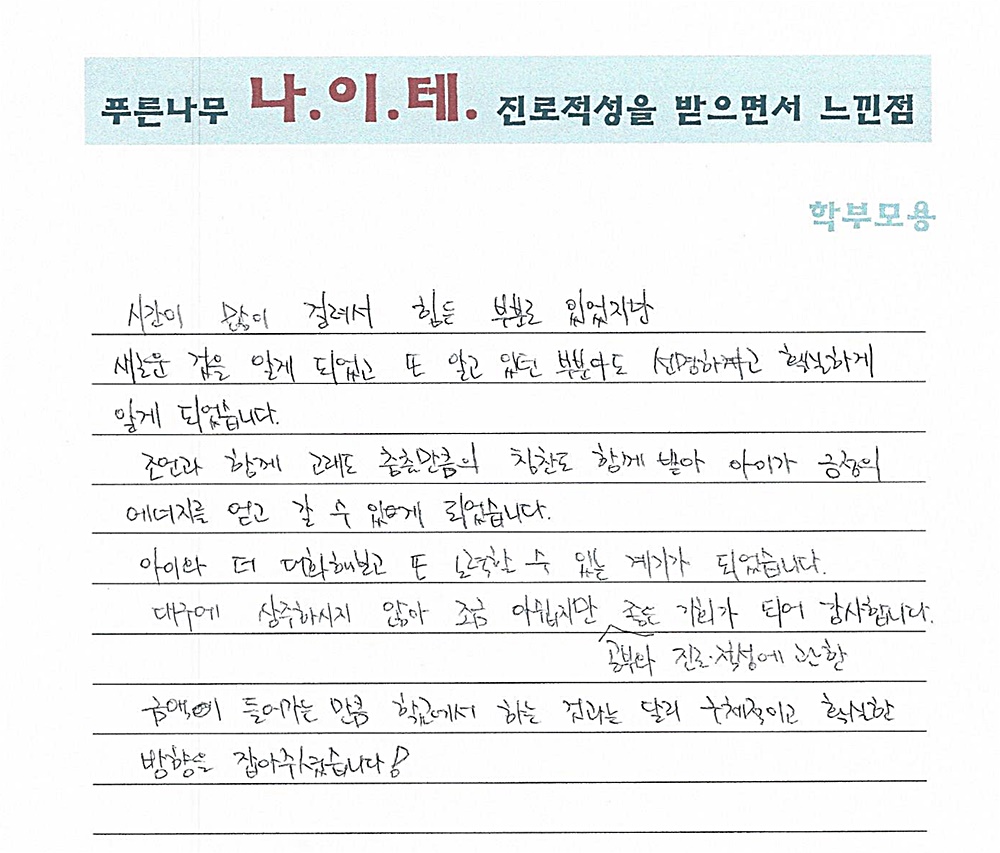 푸른나무 나.이.테. 진로적성을 받으면서 느낀점
학부모용
시간이 많이 걸려서 힘든 부분도 있었지만
새로운 것을 알게 되었고 또 알고 있던 부분마도 선명하고 확실하게
알게 되었습니다.
조언과 함께 고래도 춤출만큼의 칭찬도 함께 받아 아이가 긍정의
에너지를 얻고 갈 수 있게 되었습니다.
아이와 더 대화해보고 또 노력할 수 있는 계기가 되었습니다.
대구에 상주하시지 않아 조금 아쉽지만 좋은 기회가 되어 감사합니다.
공부와 진로·적성에 관한
금액이 들어가는 만큼 학교에서 하는 것과는 달리 구체적이고 확실한
방향을 잡아주셨습니다!